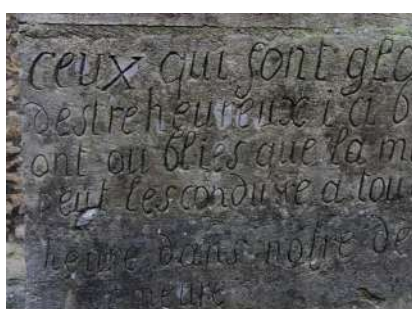 ceux qui sont glo
destre heureux i ci b
ont ou blies que la m
peut les conduire a tou
heure dans nostre de
meure